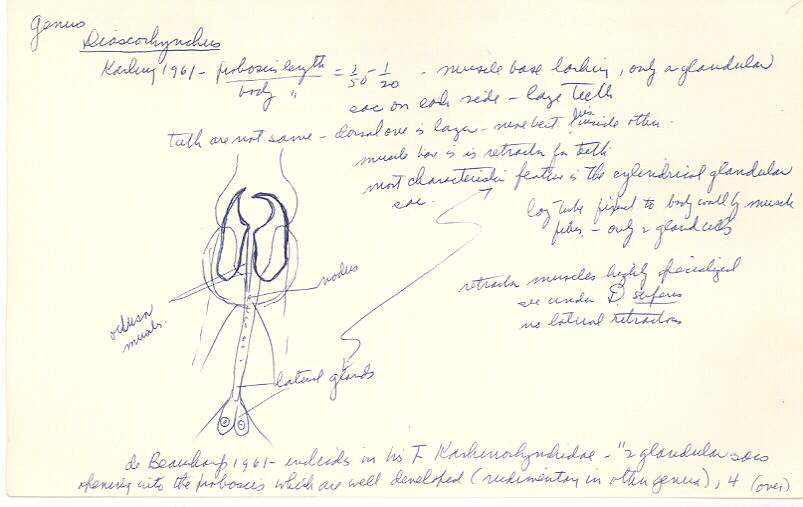 Genus
Diascorhynchus
Karling 1961 - proboscis length / body " = 1/50 - 1/20 - muscle base lacking, only a glandular
sac on each side - large teeth
Teeth are not same - dorsal one is larger - more bent inside other.
muscle base is retractor for teeth
most characteristic feature is the cylindrical glandular
sac.
long tube fixed to body wall by muscle
fibers, - only 2 gland cells
retractor muscles highly specialized
see under D.
no lateral retractors
nodus
muscles.
lateral glands
de Beauchamp 1961 - includes in his F Karkinorhynchidae - "2 glandular sacs
opening into the proboscis which are well developed (rudimentary in other genera), 4 (over)